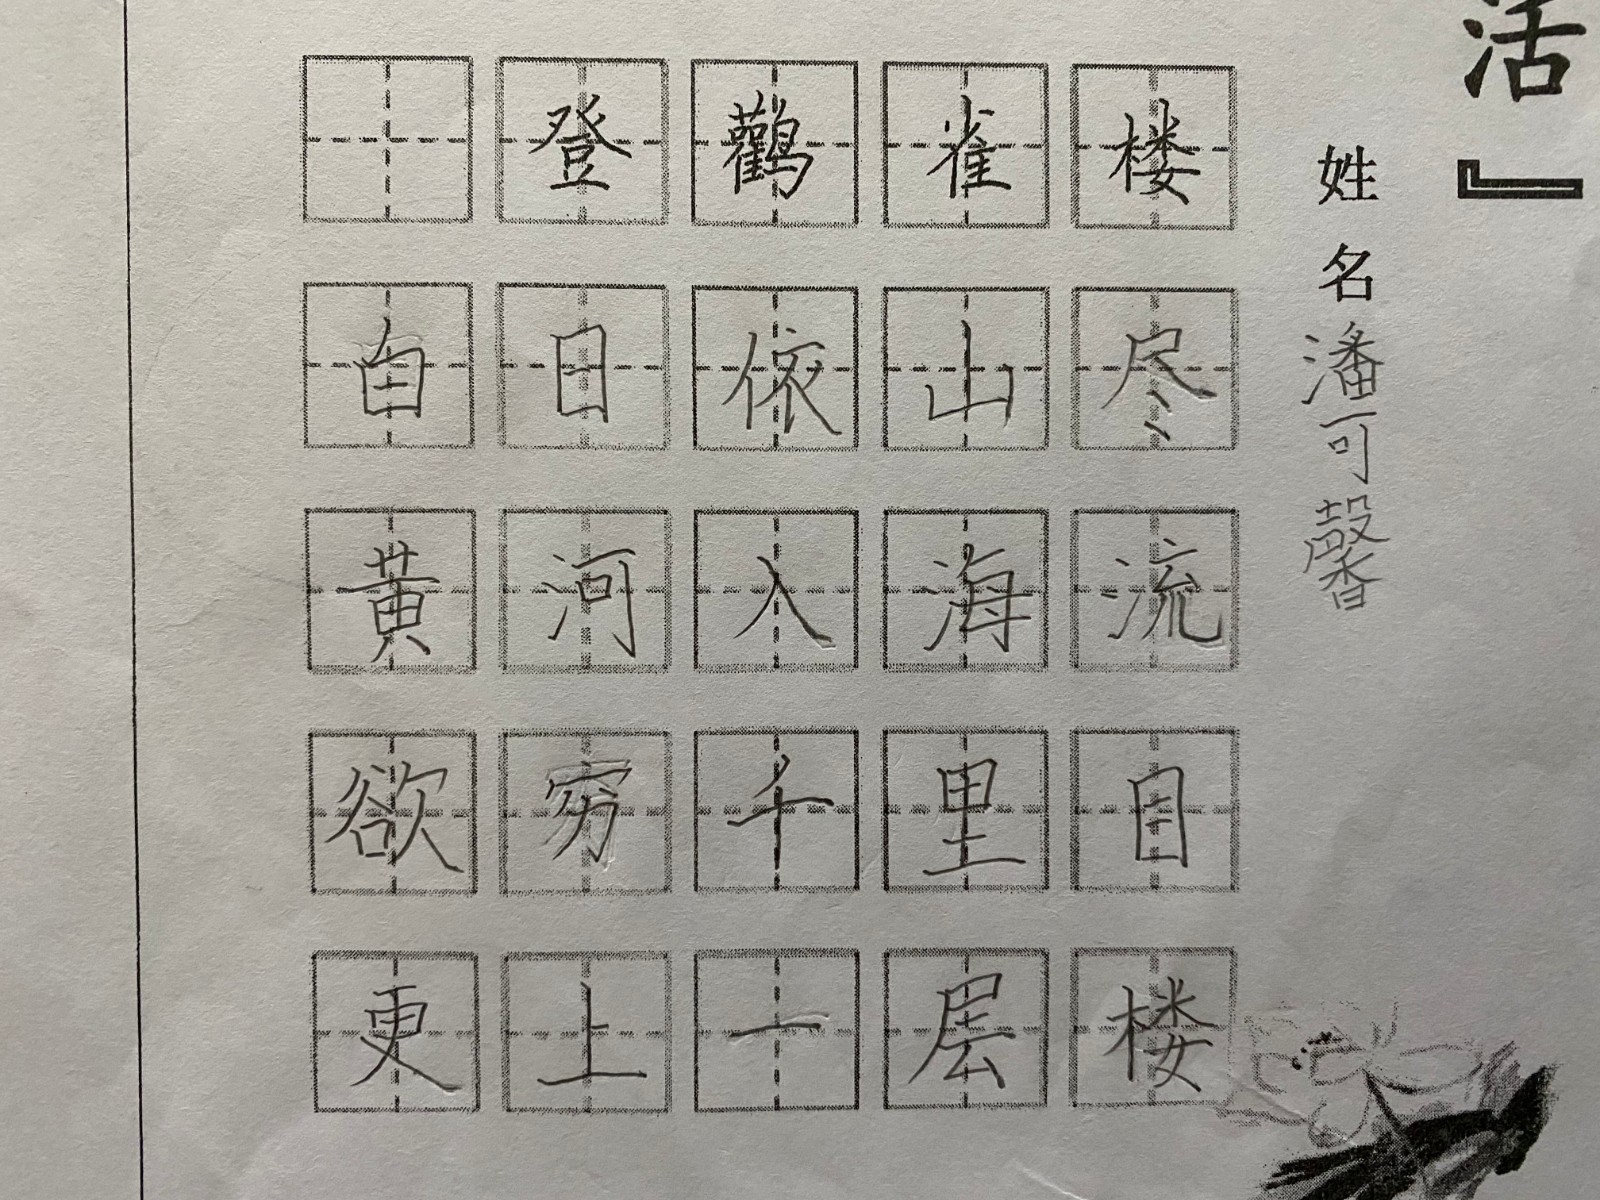 登鸛雀楼
白日依山尽
黄河入海流
欲穷千里目
更上一层楼
姓名潘可馨
活』